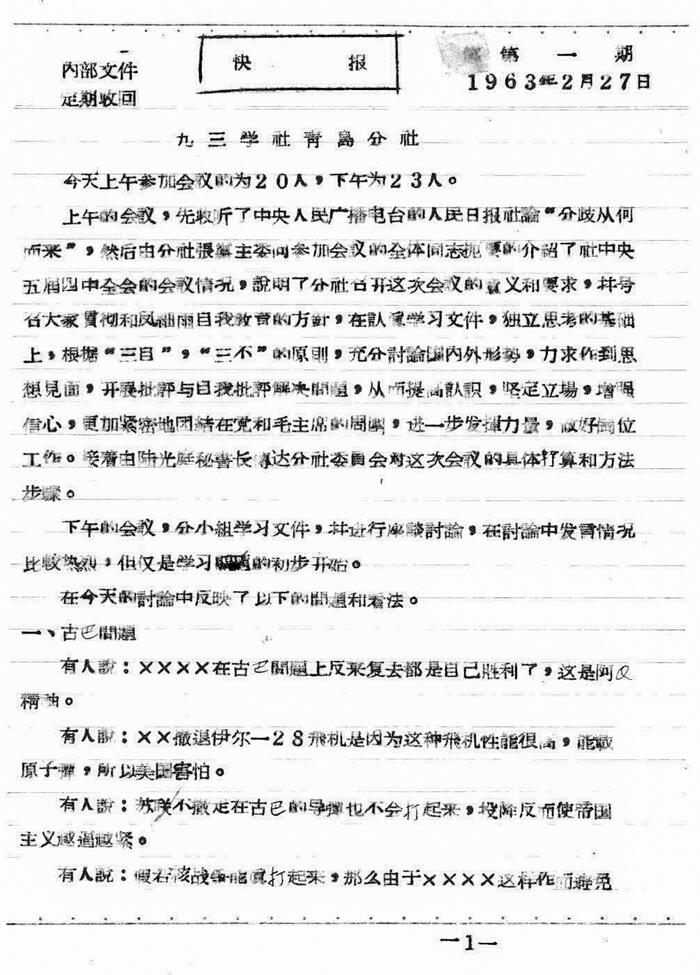 內部文件
定期收回
快 报
第 一 期
1963年2月27日
九三学社青島分社
今天上午参加会议的为20人，下午为23人。
上午的会议，先收听了中央人民广播电台的人民日报社論“分歧从何
而来”，然后由分社張 主委向参加会议的全体同志扼要的介紹了社中央
五届四中全会的会议情况，說明了分社召开这次会议的意义和要求，并号
召大家貫彻和风細雨自我教育的方針，在認真学习文件，独立思考的基础
上，根据“三自”，“三不”的原則，充分討論国内外形势，力求作到思
想見面，开展批評与自我批評解决問題，从而提高認识，坚定立場，增强
信心，更加紧密地团結在党和毛主席的周圍，进一步发揮力量，做好崗位
工作。接着由陆光庭秘書长傳达分社委員会对这次会议的具体打算和方法
步驟。
下午的会议，分小組学习文件，并进行座談討論，在討論中发言情况
比較热烈，但仅是学习 的初步开始。
在今天的討論中反映了以下的問題和看法。
一、古巴問題
有人說：××××在古巴問題上反来复去都是自己胜利了，这是阿Q
精神。
有人說：××撤退伊尔—28飛机是因为这种飛机性能很高，能載
原子彈，所以美国害怕。
有人說：苏联不撤走在古巴的导彈也不会打起来，投降反而使帝国
主义越逼越紧。
有人說：假若核战爭能真打起来，那么由于××××这样作而避免
—1—